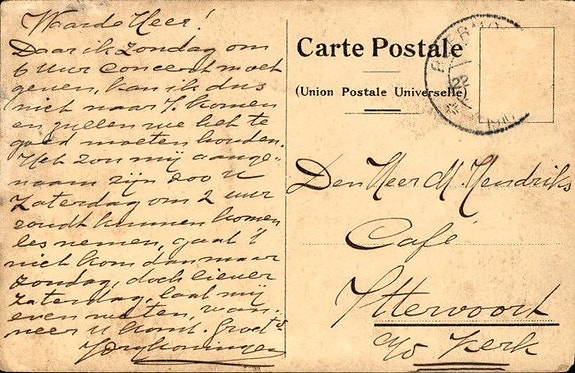 Waarde Heer!
Daar ik Zondag om
6 uur concert moet
geven, kan ik dus
niet naar I. komen
en zullen we het te
goed moeten houden.
Het zou mij aange-
naam zijn zoo U
Zaterdag om 2 uur
zoudt kunnen komen
les nemen, gaat 't
niet kom dan maar
Zondag, doch liever
Zaterdag, laat mij
even weten, wan-
neer U komt. Groet
Carte Postale
(Union Postale Universelle)
Den Heer M. Hendriks
Café
Ittervoort
a/d Kerk